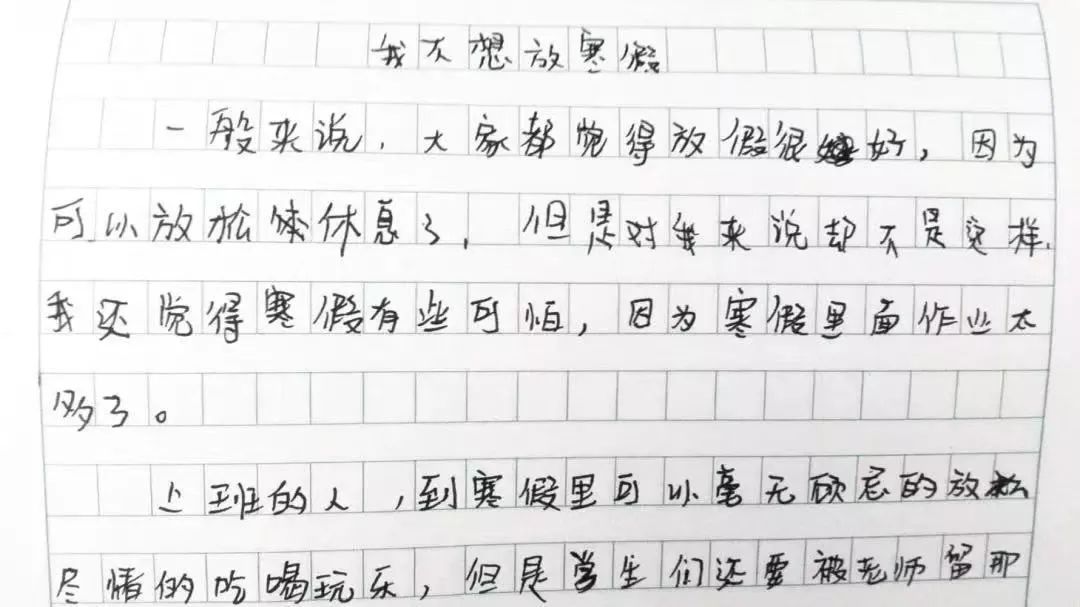 我不想放寒假
一般来说，大家都觉得放假很好，因为
可以放松休息了，但是对我来说却不是这样，
我还觉得寒假有些可怕，因为寒假里面作业太
多了。
上班的人，到寒假里可以毫无顾忌的放松
尽情的吃喝玩乐，但是学生们还要被老师留那